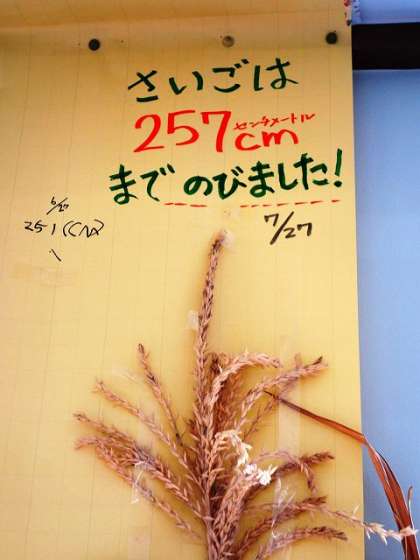 さいごは
257cm
センチメートル
までのびました!
7/27
6/27
251(CM)